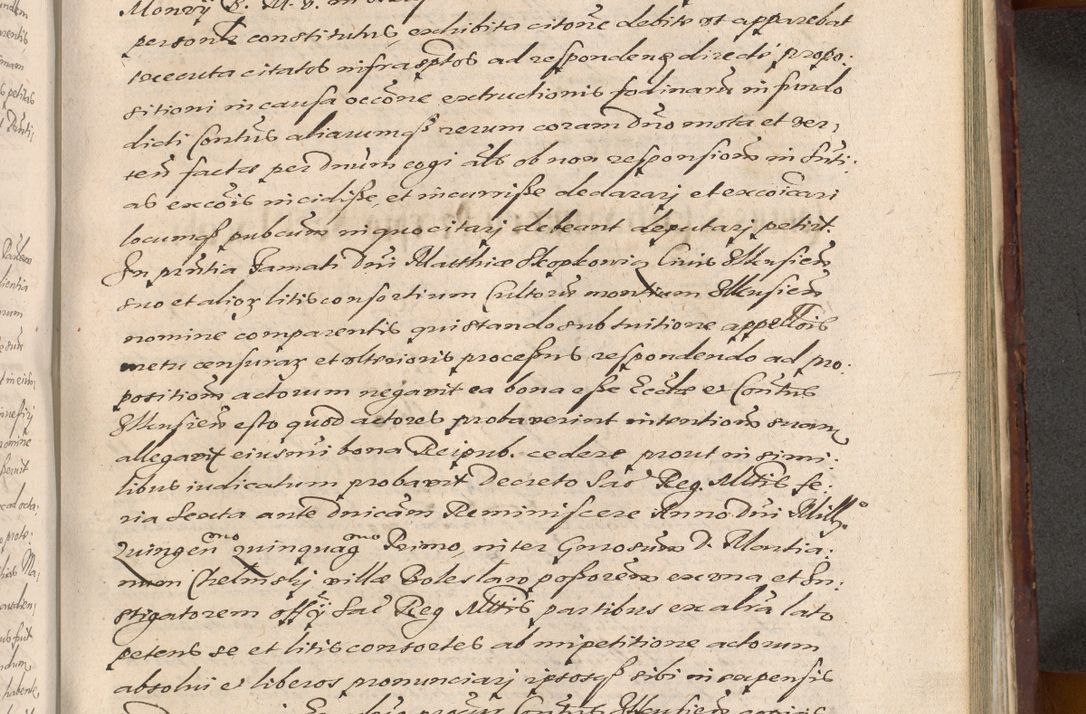 personis constitutus, exhibita citone debite ut apparebat
executa citatos infrascptos ad respondens directi propo:
sitioni in causa occone extructionis fodinarū in fundo
dicti Contus aliarumqß rerum coram Dno mota et ver,
ten facta per Dnum cogi als ob non responsionem in snti:
as excois incidiße, et incurriße declarari et excoicari
locumqß pubcum in quo citari debeant deputari petiit.
In pntia Famati Dni Matthiæ Skopkowicz Civis Ilkusien
suo et alioz litis consortium Cultorū montium Ilkusien
nomine comparentis qui stando sub tuitione appellois
metu censuraz et ulterioris processus respondendo ad pro:
positionem actorum negavit ea bona esse Eccl͠æ et Contus
Ilkusien esto quod actores probaverint intentionem suam
allegavit eiusmi bona Reipub. cedere prout in simi:
libus iudicatum probavit Decreto Sac Reg. Mttis fe:
ria Sexta ante Dnicam Reminiscere Anno Dni Mill͠o
Quingen͠mo quinquag͠mo Primo, inter Gnosum D. Martia:
num Chelmski villæ Boleslaw poßorem ex una et In:
stigatorem offy Sac Reg Mttis partibus ex altra lato
petens se et litis consortes ab impetitione actorum
absolvi et liberos pronunciari ipsosqß sibi in expensis